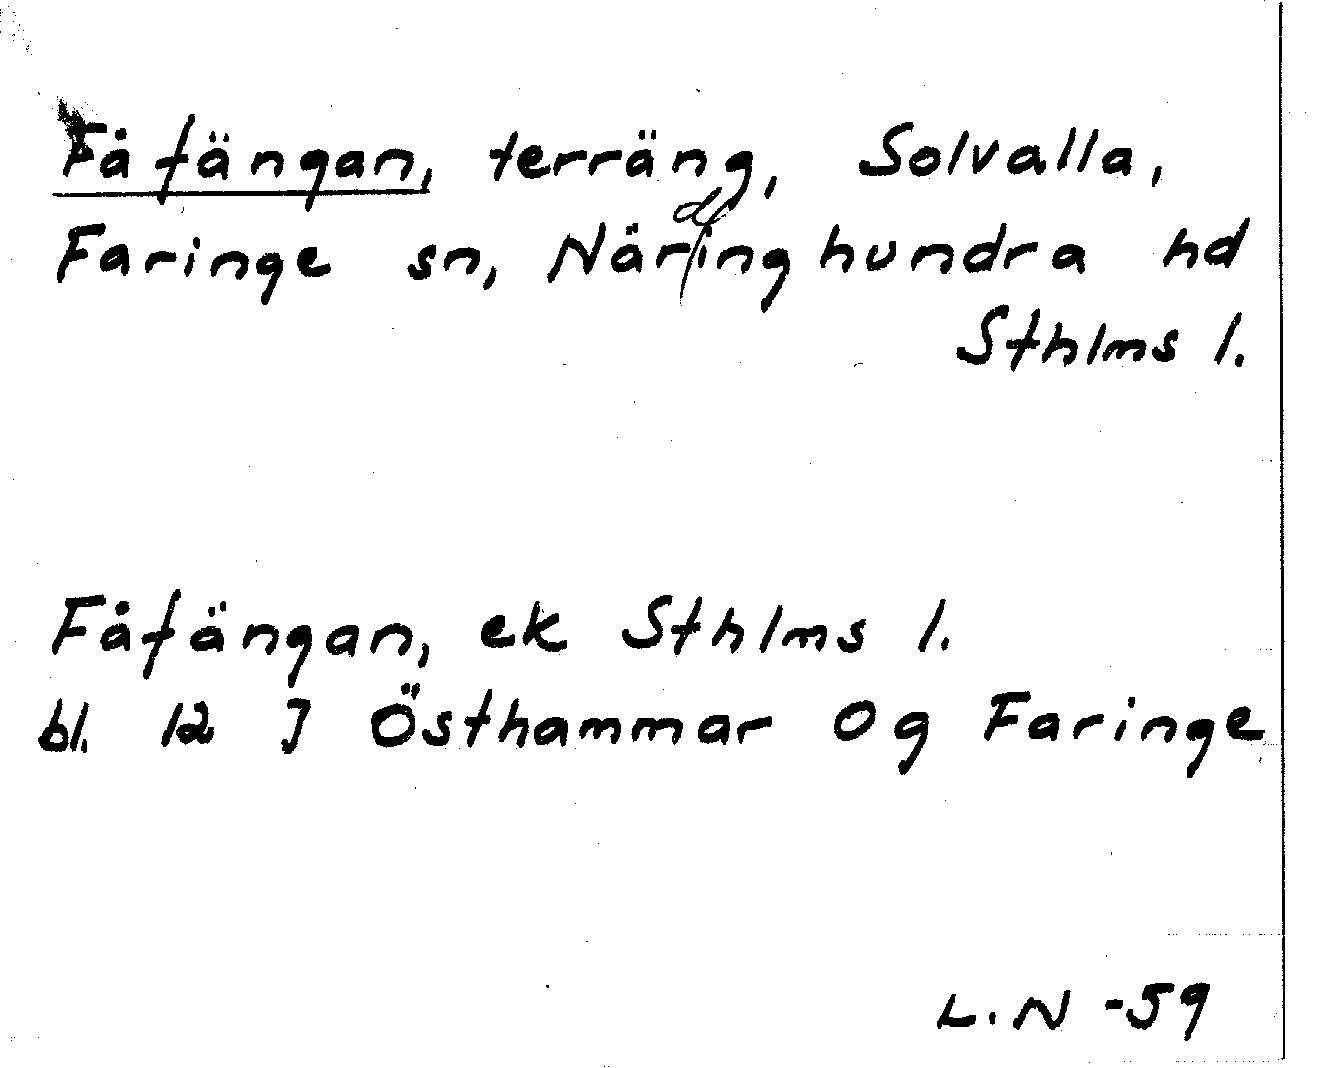 Fåfängan, terräng, Solvalla,
Faringe sn, Närdinghundra hd
Sthlms l.
Fåfängan, ek Sthlms l.
bl. 12 J Östhammar Og Faringe
L.N -59